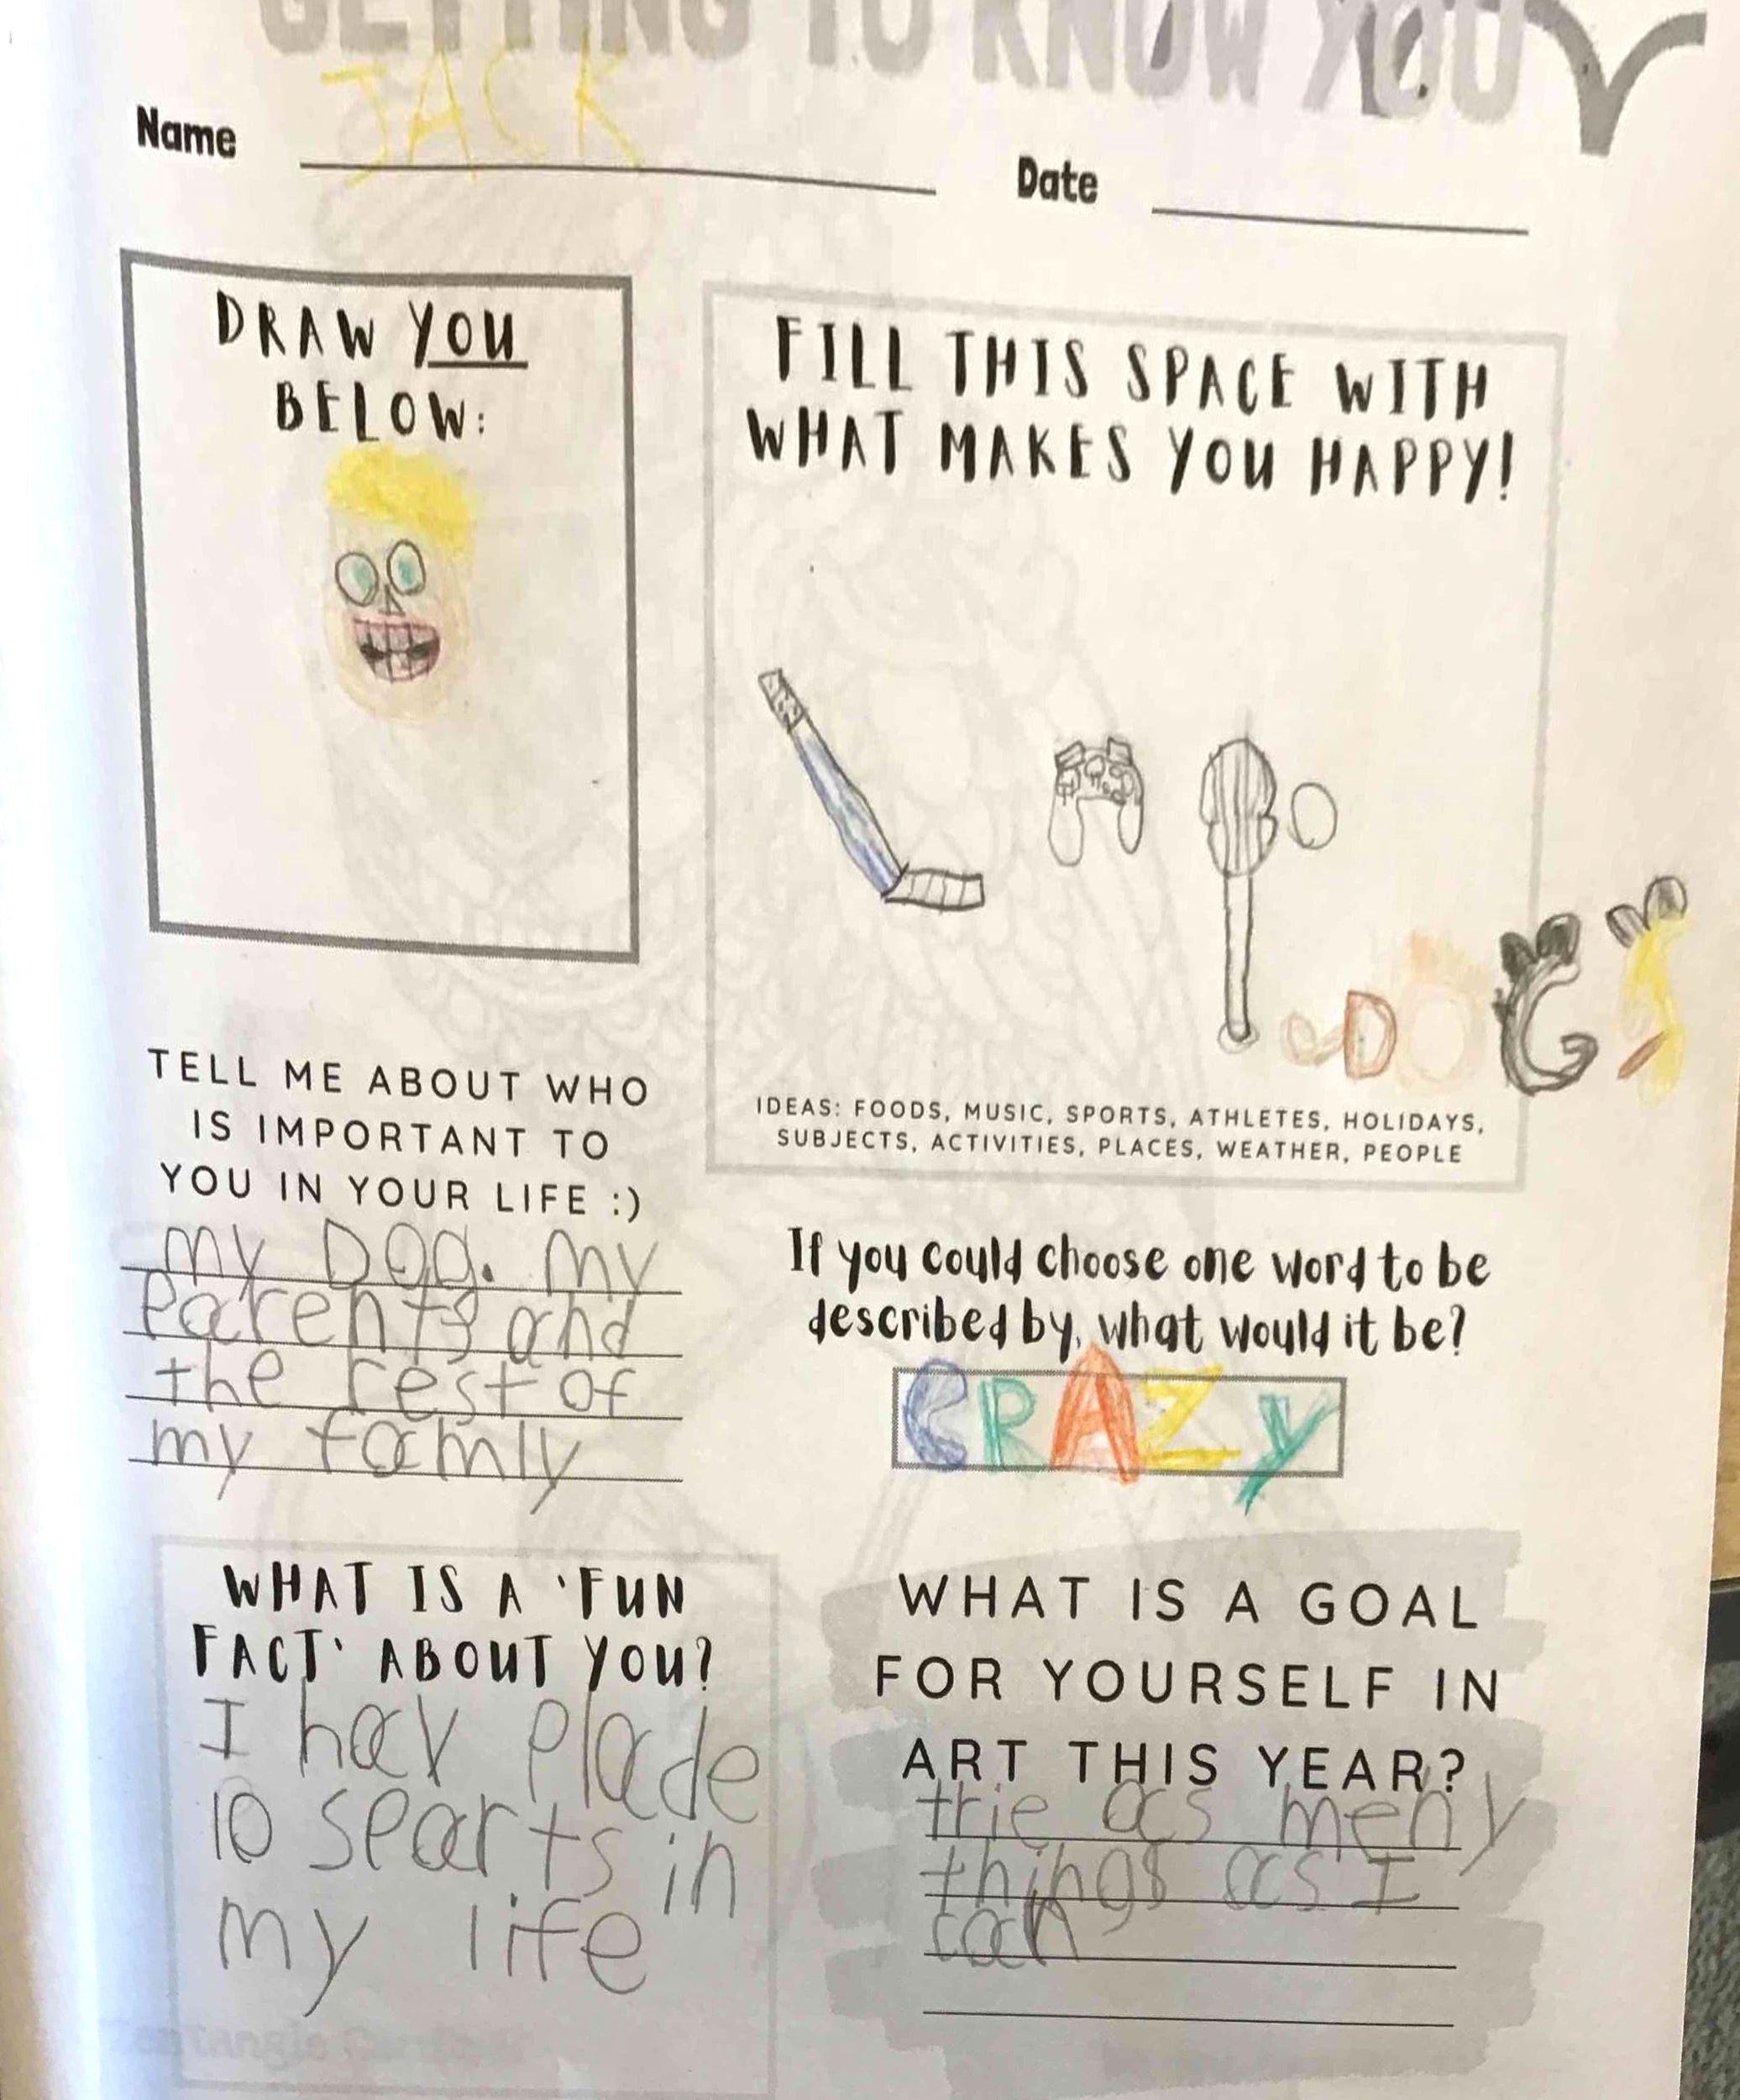 GETTING TO KNOW YOU
Name JACK Date
DRAW YOU
BELOW:
FILL THIS SPACE WITH
WHAT MAKES YOU HAPPY!
DOGS
IDEAS: FOODS, MUSIC, SPORTS, ATHLETES, HOLIDAYS,
SUBJECTS, ACTIVITIES, PLACES, WEATHER, PEOPLE
TELL ME ABOUT WHO
IS IMPORTANT TO
YOU IN YOUR LIFE :)
my Dog. my
Parents and
the rest of
my famly
If you could choose one word to be
described by, what would it be?
CRAZY
WHAT IS A 'FUN
FACT' ABOUT YOU?
I hav Plade
10 Spearts in
my life
WHAT IS A GOAL
FOR YOURSELF IN
ART THIS YEAR?
trie as meny
things as I
can